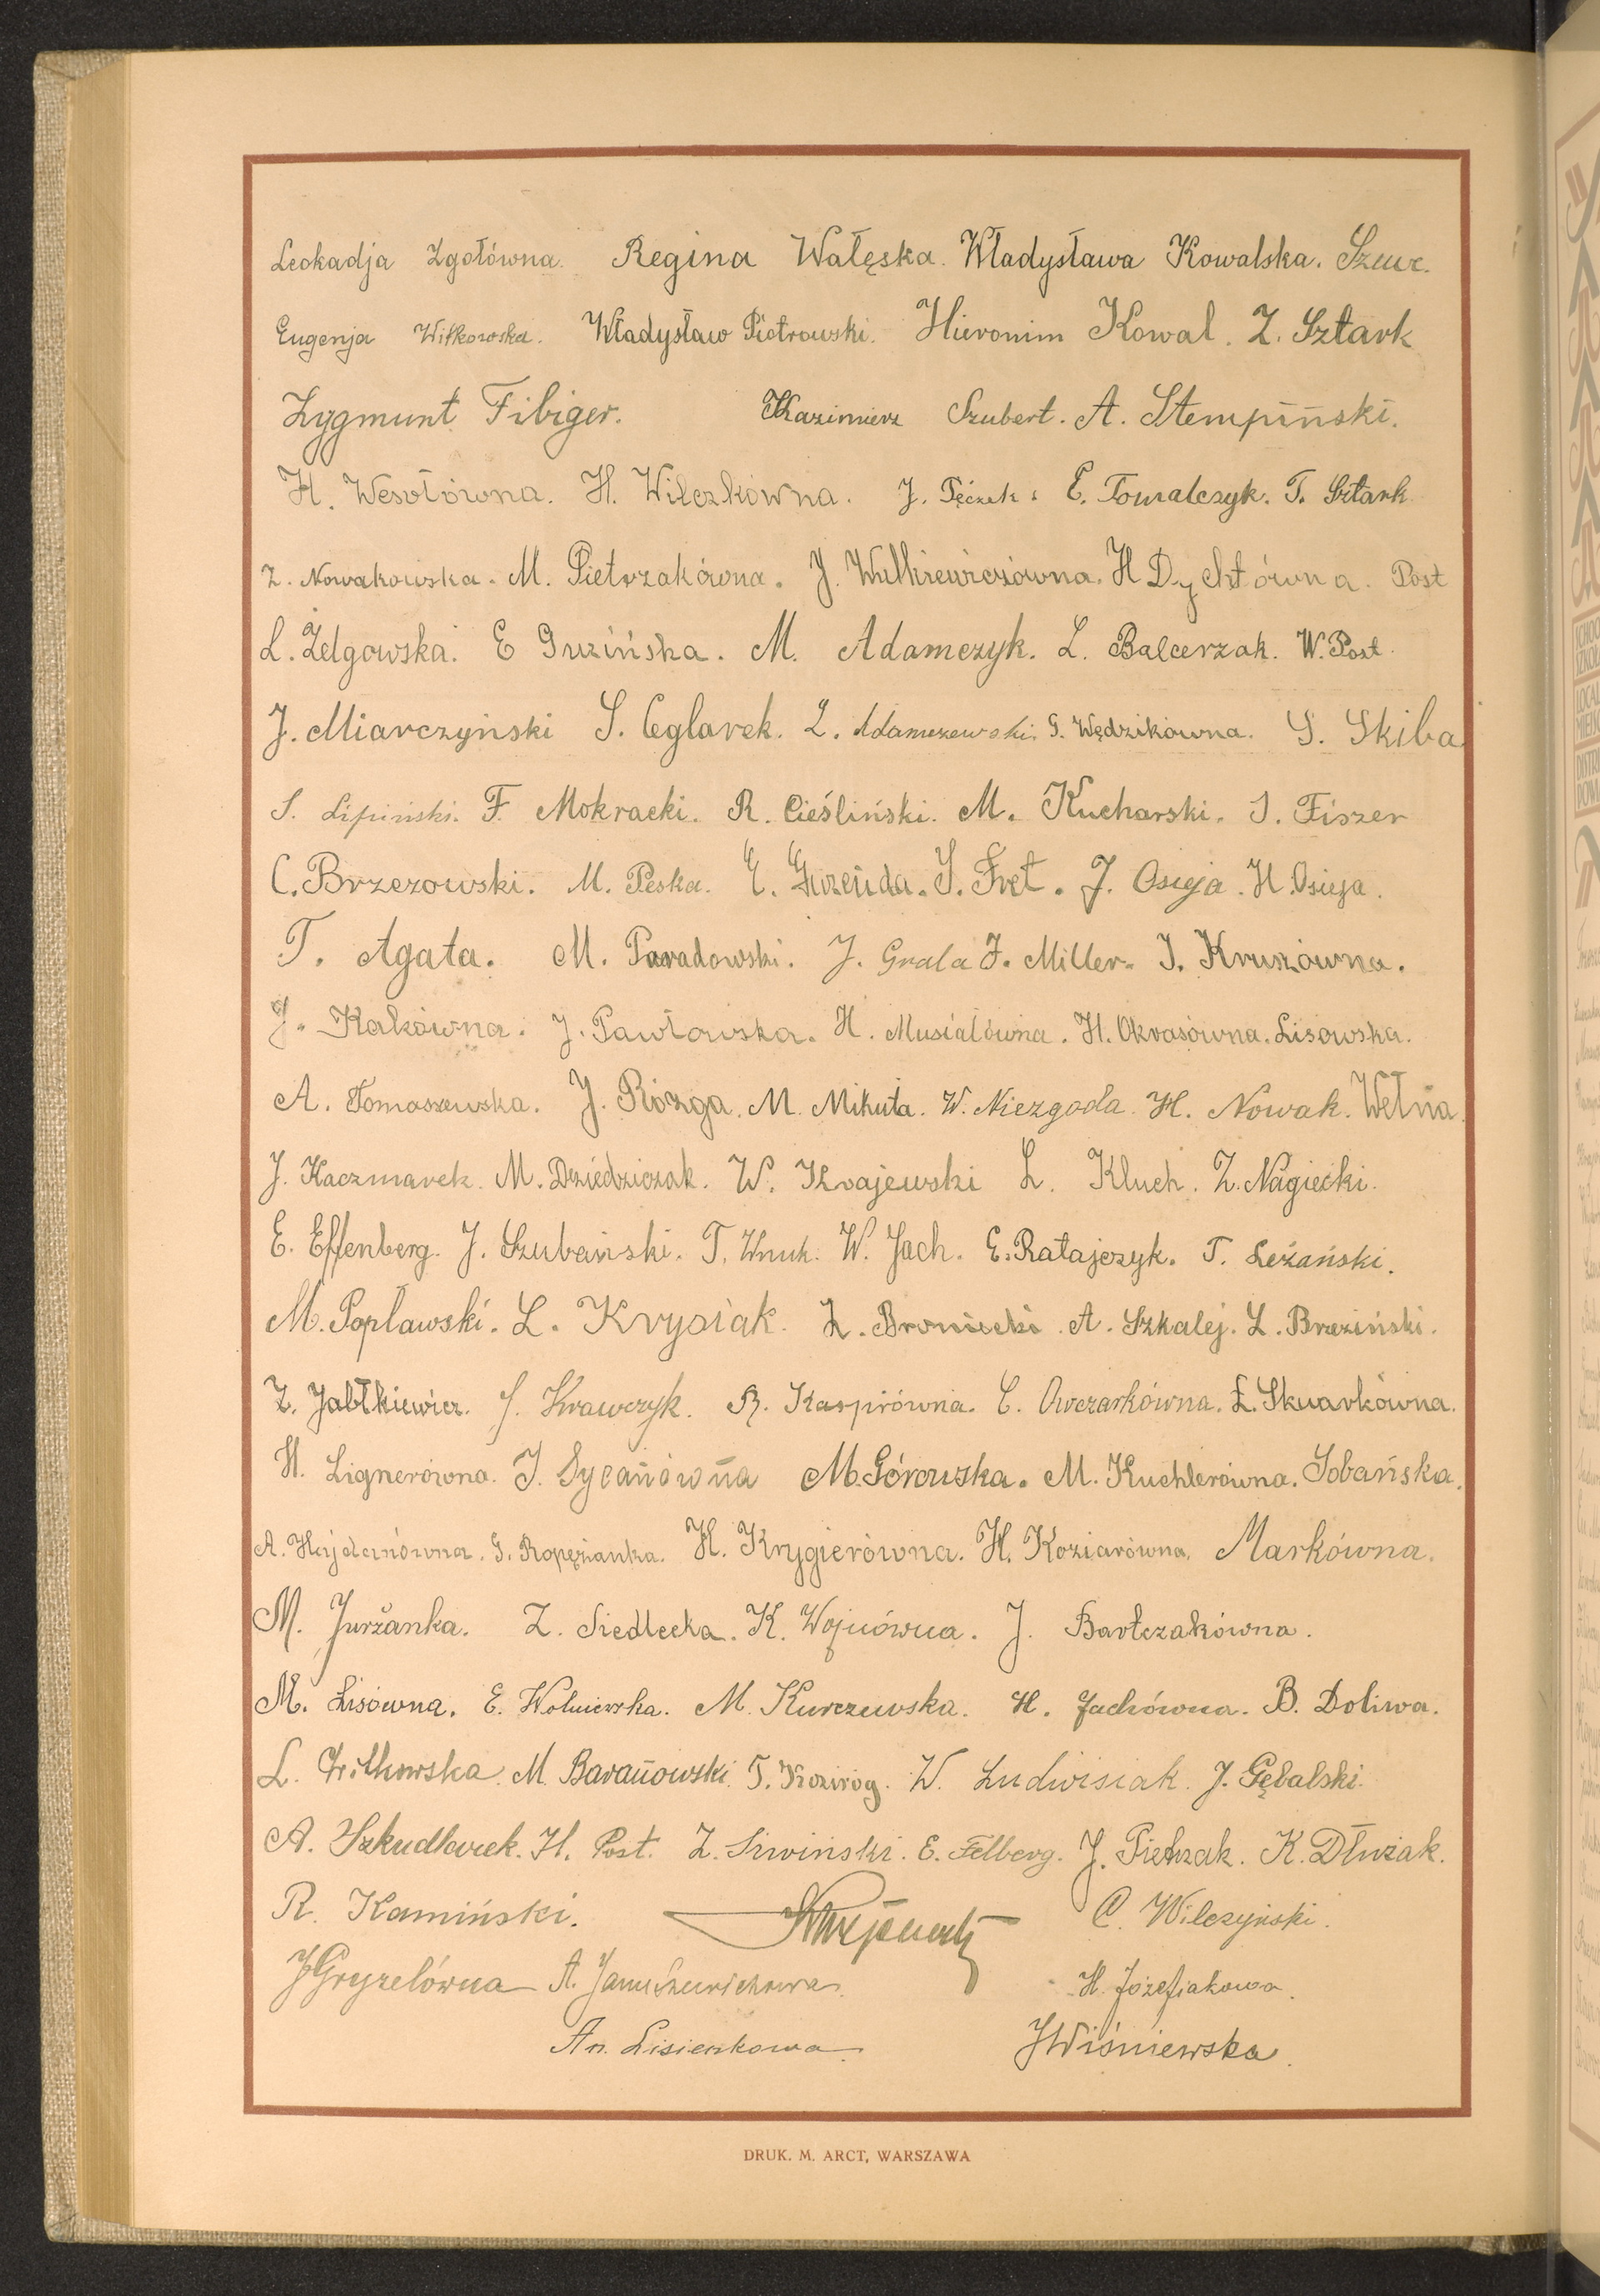 Leokadja Zgołówna. Regina Wałęska. Władysława Kowalska. Szewc.
Eugenja Witkowska. Władysław Piotrowski. Hieronim Kowal. Z. Sztark
Zygmunt Fibiger. Kazimierz Szubert. A. Stempiński.
H. Wesołówna. H. Wilczkówna. J. Pęczek. E. Towalczyk. T. Sztark
Z. Nowakowska. M. Pietrzakówna. J. Walkiewiczówna. H Dychtówna. Post
L. Żelgowska. E Guzińska. M. Adamczyk. L. Balcerzak. W. Post.
J. Miarczyński S. Ceglarek. L. Adamczewski. G. Wędzikówna. S. Skiba
S. Lipiński. F. Mokracki. R. Cieśliński. M. Kucharski. J. Fiszer
C. Brzezowski. M. Peska. E. Gwizda. S. Fret. J. Osieja. H. Osieja.
T. Agata. M. Paradowski. J. Grala F. Miller. I. Kruszówna.
J. Kakówna. J. Pawłowska. H. Musiałówna. H. Okrasówna. Lisowska.
A. Tomaszewska. J. Rózga. M. Mikuta. W. Niezgoda. H. Nowak. Wełna
J. Kaczmarek. M. Dziedziczak. W. Krajewski L. Kluch. Z. Nagiecki.
E. Effenberg. J. Szubański. T. Wnuk. W. Jach. E. Ratajczyk. T. Leżański.
M. Popławski. L. Krysiak. Z. Broniecki. A. Szkalej. L. Brzeziński.
Z. Jabłkiewicz. J. Krawczyk. R. Kasprówna. C. Owczarkówna. Ł. Skwarkówna.
H. Lignerówna. J. Sycanówna M. Górowska. M. Kuchlerówna. Sobańska.
A. Hajdanówna. G. Ropęzianka. H. Krygierówna. H. Koziarówna. Markówna.
M. Jurżanka. Z. Siedlecka. K. Wojnówna. J. Bartczakówna.
M. Lisówna. E. Wolniewska. M. Kurczewska. H. Jachówna. B. Doliwa.
L. Witkowska. M. Baranowski. T. Koziróg. W. Ludwisiak. J. Gębalski.
A. Szkudlarek. H. Post. Z. Siwiński. E. Felberg. J. Pietrzak. K. Dłużak.
R. Kamiński. C. Wilczyński.
J Gryzelówna A. Januszkiewiczowa. H. Józefiakowa.
An. Lisienkowa. J Wiśniewska.
DRUK. M. ARCT, WARSZAWA